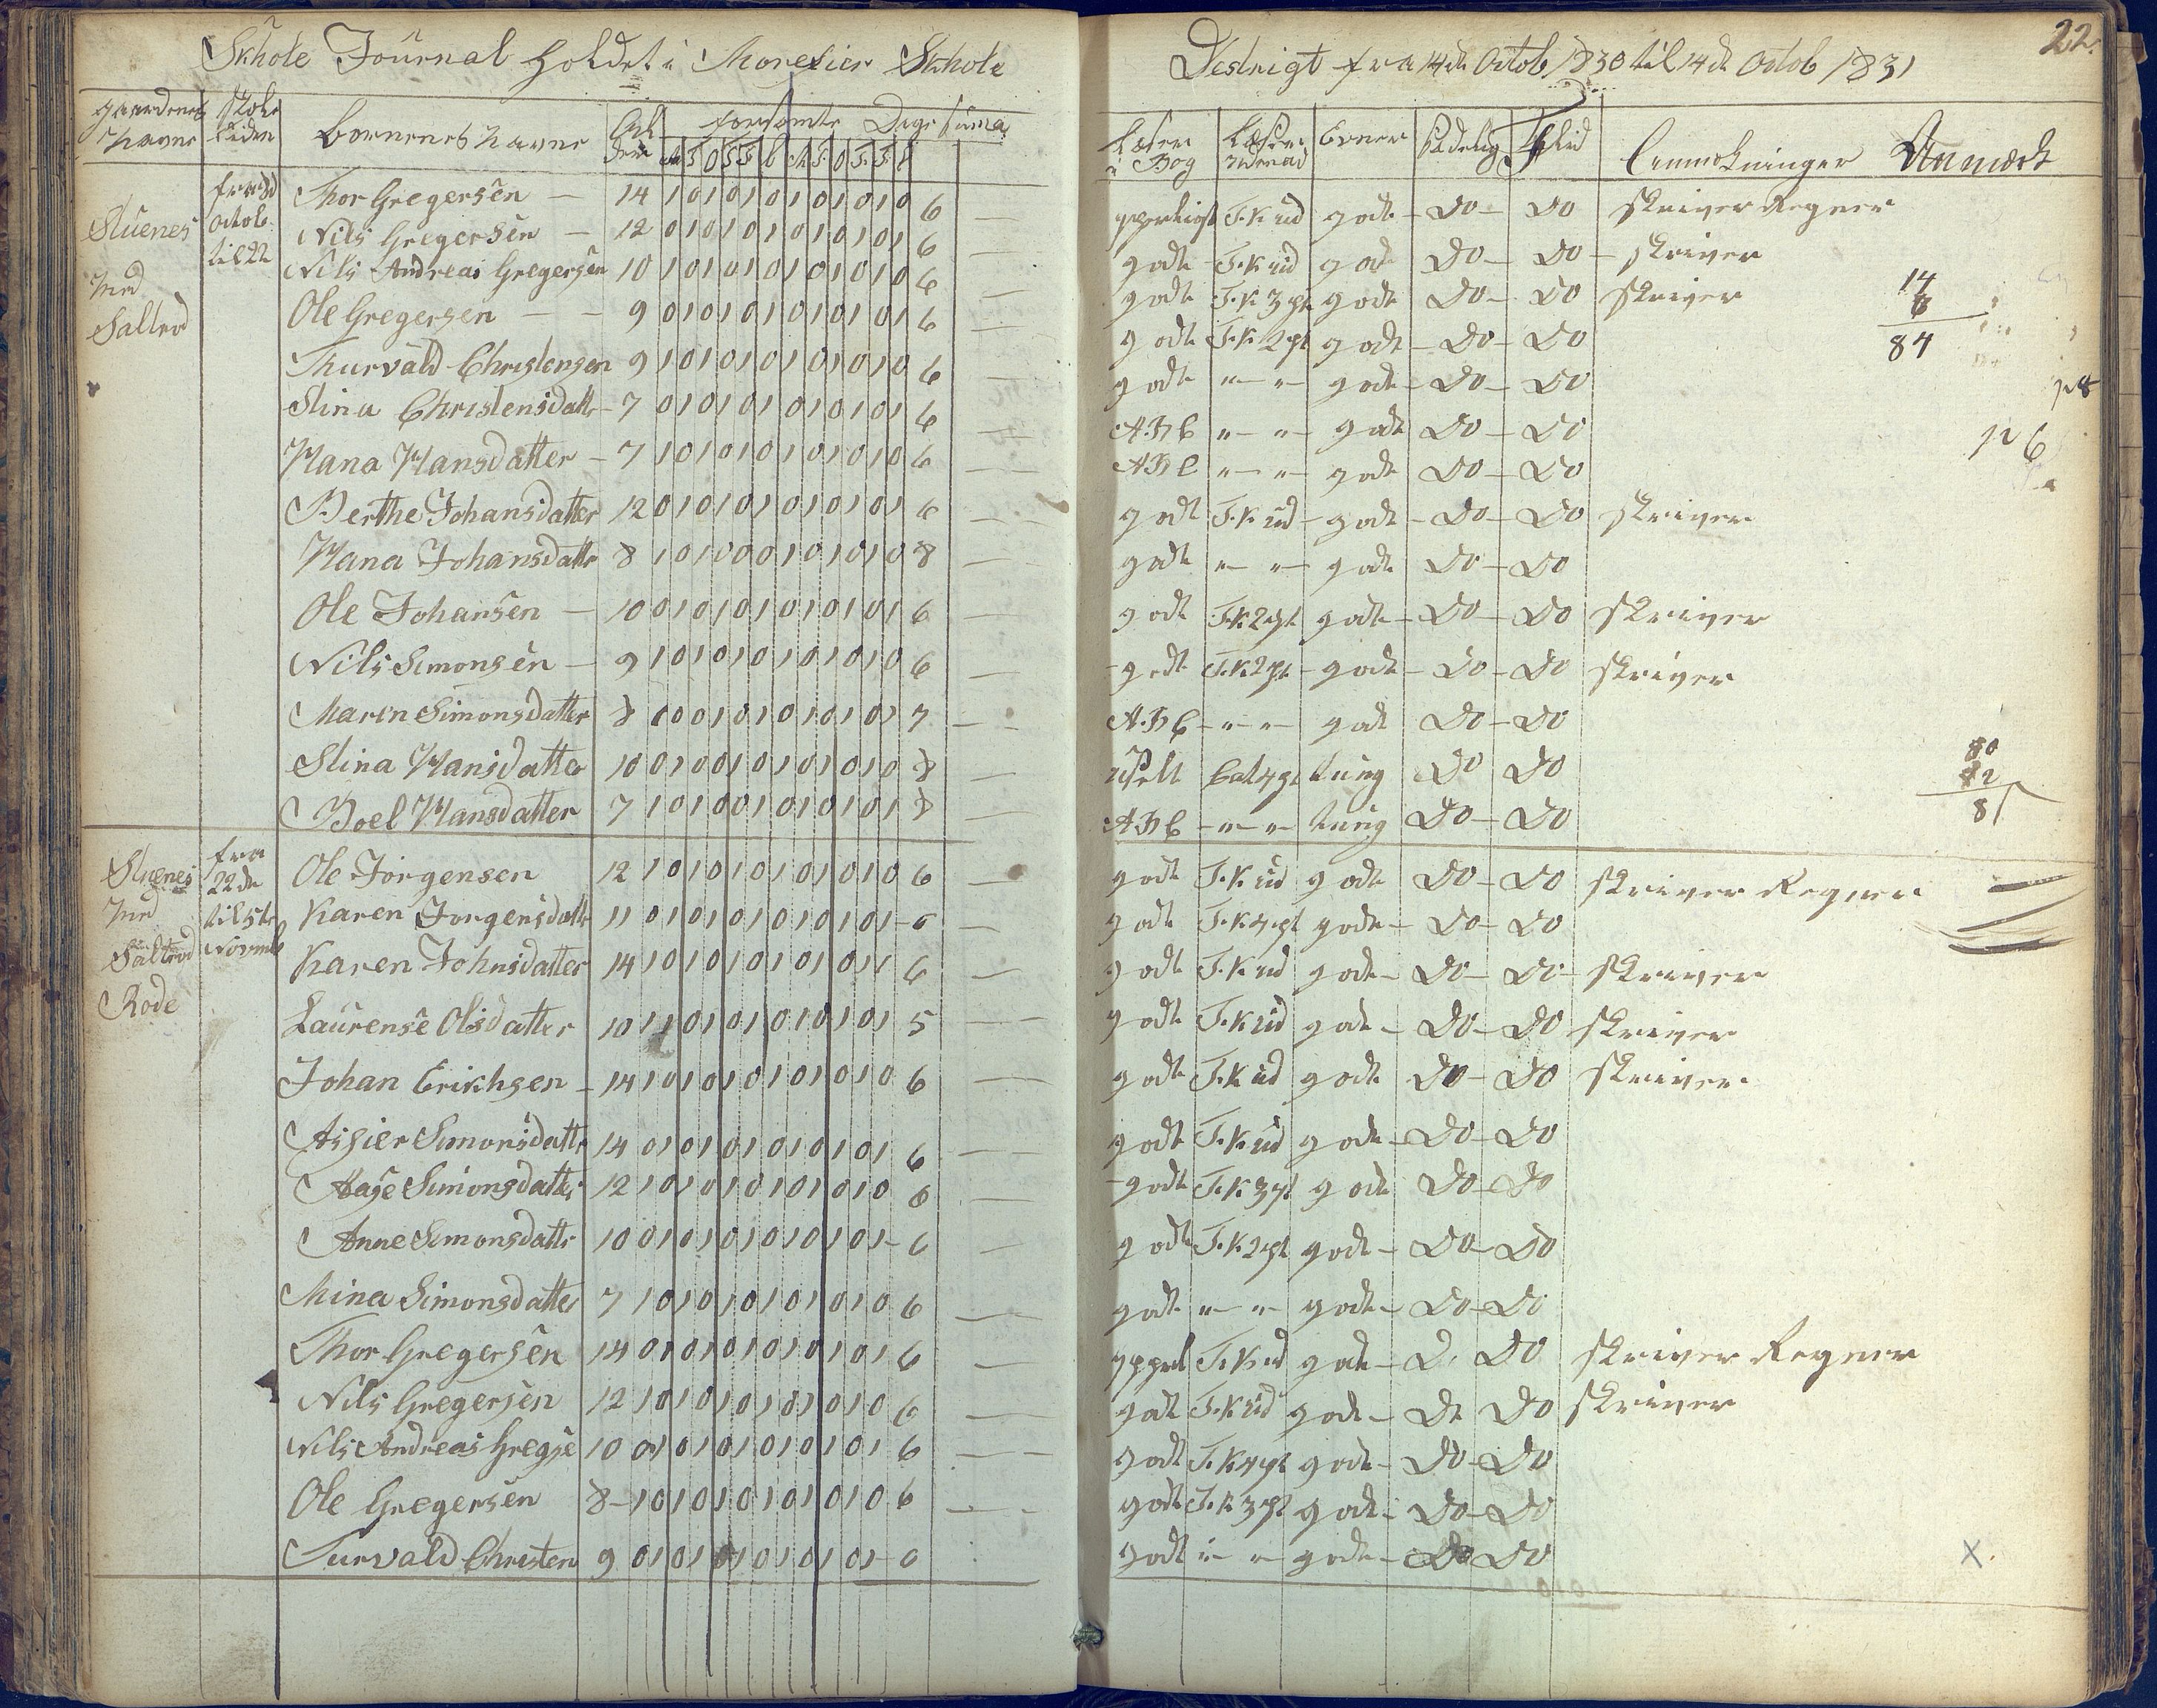 Skhole Journal Holdet i Morefier Skhole
Destrigt fra 14de Octob 1830 til 14de Octob 1831
22.
gaardenes Navne Skole tiden børnenes navne forsømte Dage suma
Læser i Bog Læser Evner Sædelig Flid Anmærk
Stuenes fra Octob til 22 Thor Gregersen — 14 1 0 1 0 1 0 1 0 1 0 1 0 6 — T.K ud godt - Do - Do skriver Regner
Nils Gregersen — 12 0 1 0 1 0 1 0 1 0 1 0 1 6 — godt T.K ud godt Do - Do - skriver
Nils Andreas Gregersen 10 1 0 1 0 1 0 1 0 1 0 1 0 6 — godt T.K 3 pt godt Do - Do skriver
14
6
84
Saltrød Ole Gregersen — 9 0 1 0 1 0 1 0 1 0 1 0 1 6 — godt T.K 2 pt godt - Do - Do
Thurvald Christensen 9 1 0 1 0 1 0 1 0 1 0 1 0 6 — godt " — " — godt - Do - Do
Stina Christensdatt - 7 0 1 0 1 0 1 0 1 0 1 0 1 6 — A.B C " — " — godt Do - Do
Hana Hansdatter - 7 1 0 1 0 1 0 1 0 1 0 1 0 6 — A B C " — " — godt Do - Do
Berthe Johansdatter 12 0 1 0 1 0 1 0 1 0 1 0 1 6 — godt T.K ud - godt - Do - Do skriver
Hana Johansdattr 8 1 0 1 0 0 0 1 0 1 0 1 0 8 — godt " — " — godt Do - Do
Ole Johansen — 10 0 1 0 1 0 1 0 1 0 1 0 1 6 — godt T.K 2 pt godt - Do - Do skriver
Nils Simonsen — 9 1 0 1 0 1 0 1 0 1 0 1 0 6 — godt T.K 2 pt - godt - Do - Do skriver
Maren Simonsdatter 8 0 0 1 0 1 0 1 0 1 0 1 7 — A.B C - " — " — godt Do - Do
Stina Hansdatter 10 0 1 0 0 1 0 1 0 1 0 1 0 8 — uselt Cat 4 pt tung Do Do
80
82
81
Boel Hansdatter 7 1 0 1 0 0 1 0 1 0 1 0 1 8 — A B C - " — " — tung Do - Do
Stuenes fra 22de Ole Jørgensen 12 1 0 1 0 1 0 1 0 1 0 1 0 6 — godt T.K ud godt Do - Do skriver Regner
til 5te Karen Jorgensdattr 11 0 1 0 1 0 1 0 1 0 1 0 1 - 6 — godt T.K 4 pt godt - Do - Do
Saltrød Novemb Karen Johnsdatter 14 1 0 1 0 1 0 1 0 1 0 1 1 6 — godt T.K ud godt - Do - Do - skriver
Rode
Laurense Olsdatter 10 1 1 0 1 0 1 0 1 0 1 0 1 5 — godt T.K ud godt - Do - Do skriver
Johan Erikhsen - 14 1 0 1 0 1 0 1 0 1 0 1 0 6 — godt T.K ud godt Do - Do skriver
Simonsdattr 14 0 1 0 1 0 1 0 1 0 1 0 1 6 — godt T.K ud godt - Do - Do
Aase Simonsdatter 12 1 0 1 0 1 0 1 0 1 0 1 0 6 — godt T.K 3 pt godt Do - Do
Anne Simonsdattr 10 0 1 0 1 0 1 0 1 0 1 0 1 - 6 — godt T.K 2 pt godt - Do - Do
Mina Simonsdatter 7 1 0 1 0 1 0 1 0 1 0 1 0 6 — godt " — " — godt - Do - Do
Thor Gregersen 14 0 1 0 1 0 1 0 1 0 1 0 1 6 — T.K ud godt - Do Do skriver Regner
Nils Gregersen 12 1 0 1 0 1 0 1 0 1 0 1 0 6 — godt T.K ud godt - Do Do skriver
Nils Andreas Gregse 10 0 1 0 1 0 1 0 1 0 1 0 1 6 — godt T.K 4 pt godt - Do - Do
Ole Gregersen 8 - 1 0 1 0 1 0 1 0 1 0 1 0 6 — godt T.K 3 pt godt - Do - Do
Turvald Christen 9 0 1 0 1 0 1 0 1 0 1 0 1 - 6 godt " — " — godt - Do Do X.